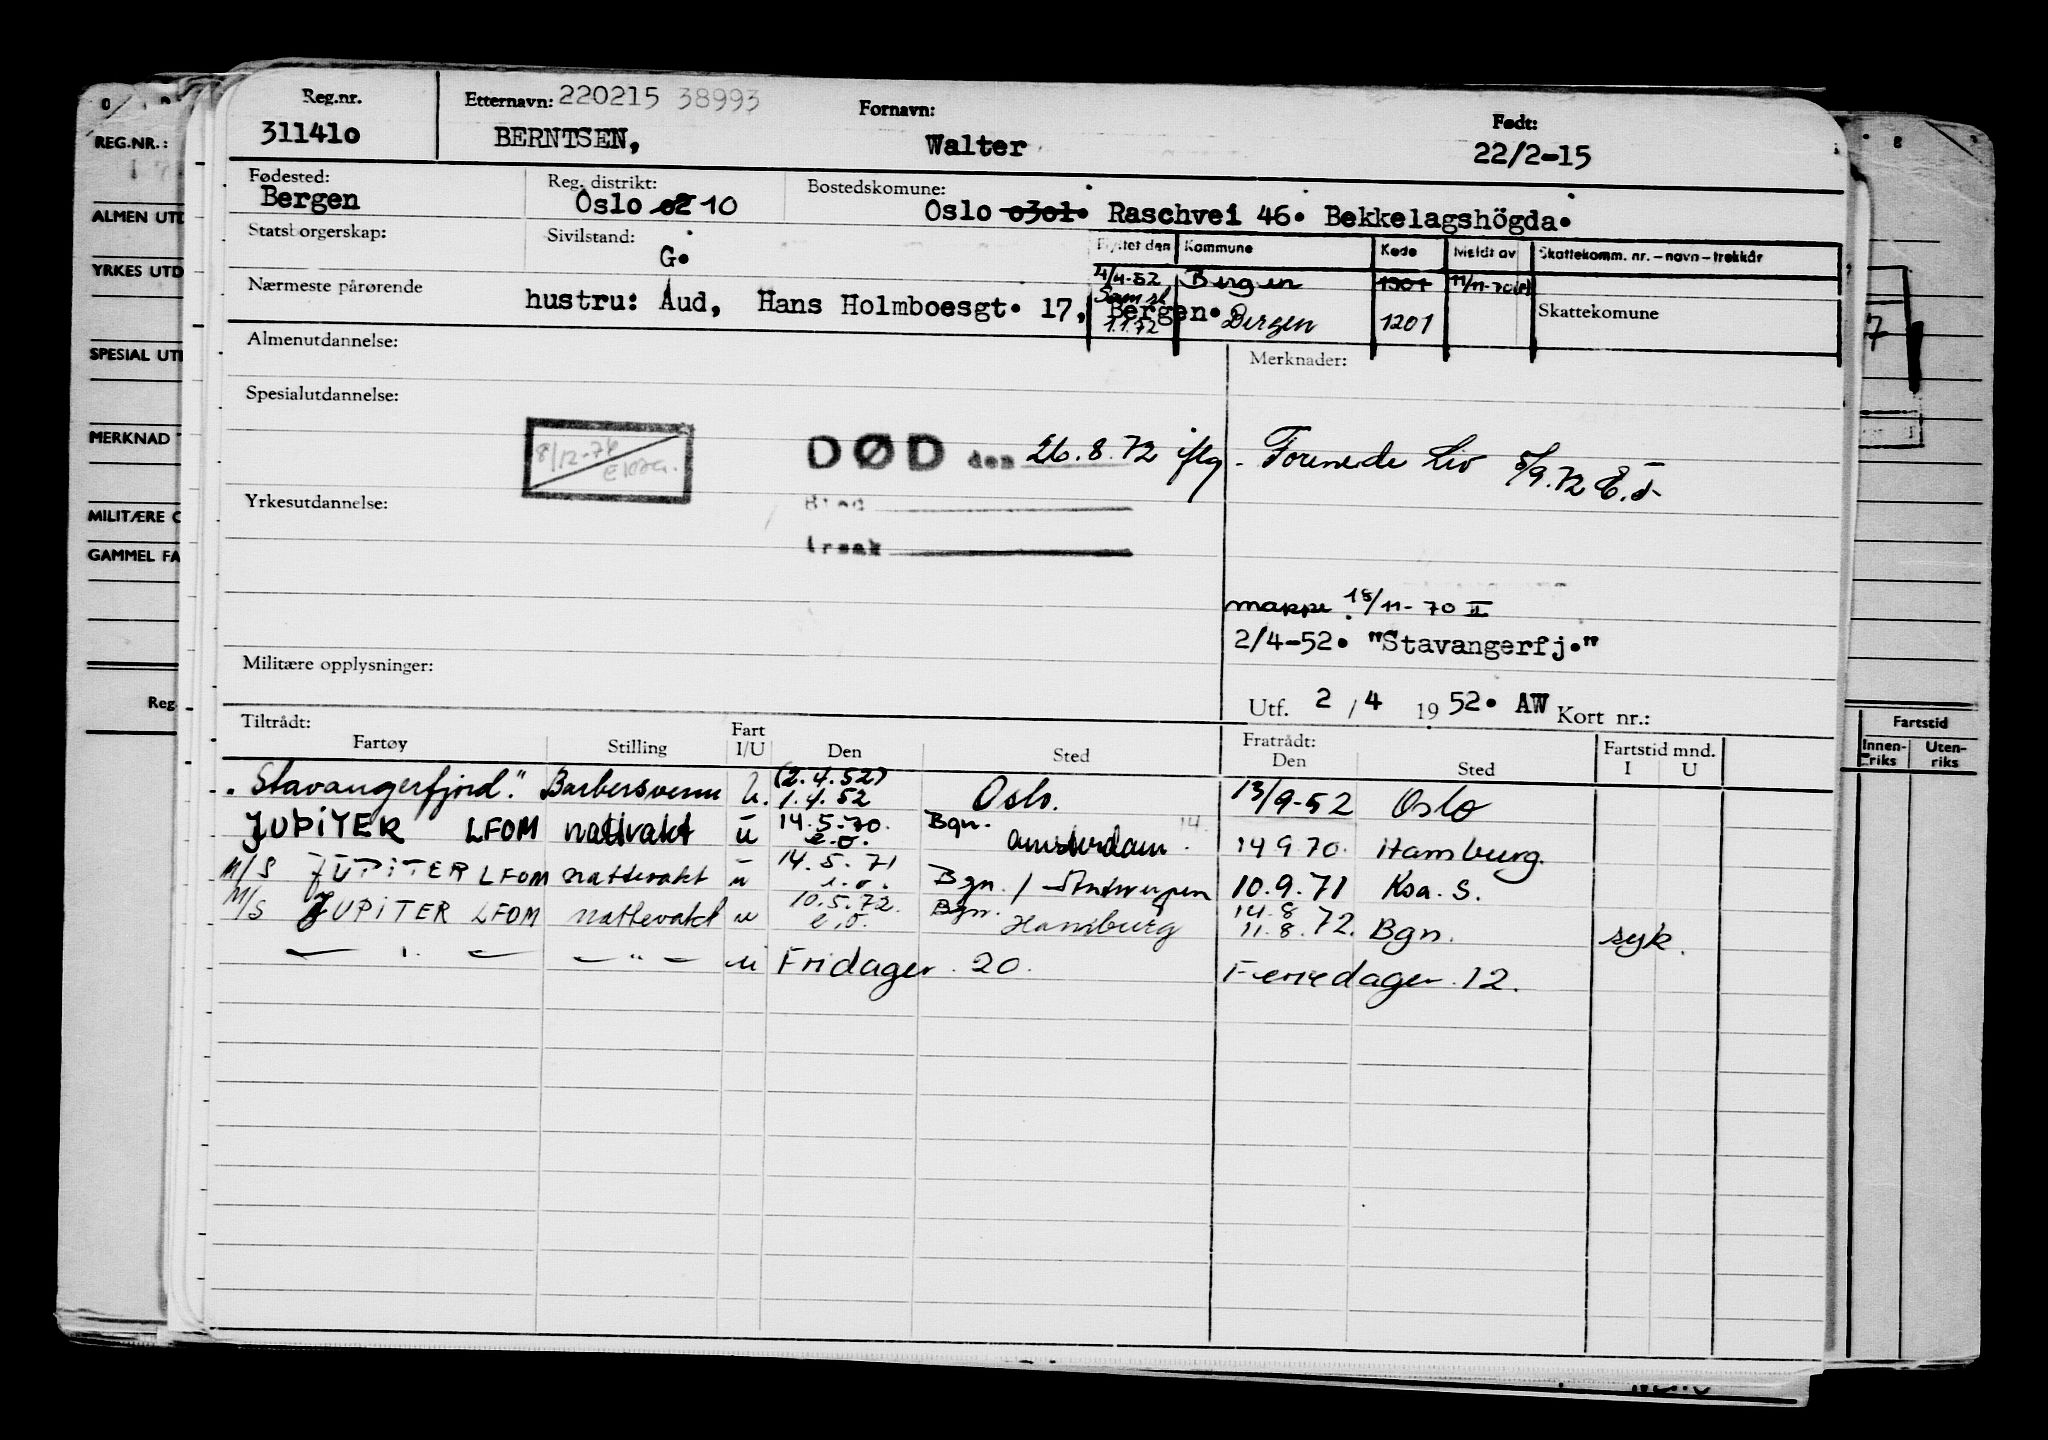 Reg.nr. Etternavn: 220215 38993 Fornavn: Født:
311410 BERNTSEN, Walter 22/2-15
Fødested: Reg. distrikt: Bostedskomune:
Bergen Oslo 02 10 Oslo 0301. Raschvei 46. Bekkelagshögda.
Statsborgerskap: Sivilstand: G.
Flyttet den Kommune Kode Meldt av Skattekomm. nr. – navn – trekkår
4/4-52 Bergen 1301 11/11-70
Nærmeste pårørende hustru: Aud, Hans Holmboesgt. 17, Bergen.
1.1.72 Bergen 1201 Skattekomune
Almenutdannelse: Merknader:
Spesialutdannelse:
8/12-76
DØD den 26.8.72 iflg. Forenede Liv 5/9.72
Yrkesutdannelse:
mappe 18/11-70 II
2/4-52. "Stavangerfj."
Militære opplysninger:
Utf. 2/4 1952. AW Kort nr.:
Tiltrådt: Fratrådt: Fartstid mnd.
Fartøy Stilling Fart I/U Den Sted Den Sted I U
"Stavangerfjord." Barbersvenn U. (2.4.52) 1.4.52 Oslo. 13/9-52 Oslo
JUPITER LFOM nattvakt u 14.5.70. e.o. Bgn. Amsterdam. 14 9 70. Hamburg.
M/S JUPITER LFOM nattevakt u 14.5.71 e.o. Bgn. / Antwerpen 10.9.71 Ksa. S.
M/S JUPITER LFOM nattevakt u 10.5.72. e.o. Bgn. Hamburg 14.8 11.8.72. Bgn. syk.
— " — — " — u Fridager. 20. Feriedager. 12.
REG.NR.:
ALMEN UTD
YRKES UTD
SPESIAL UTD
MERKNAD
MILITÆRE O
GAMMEL FA
Reg.
Fartstid
Innen-riks Uten-riks